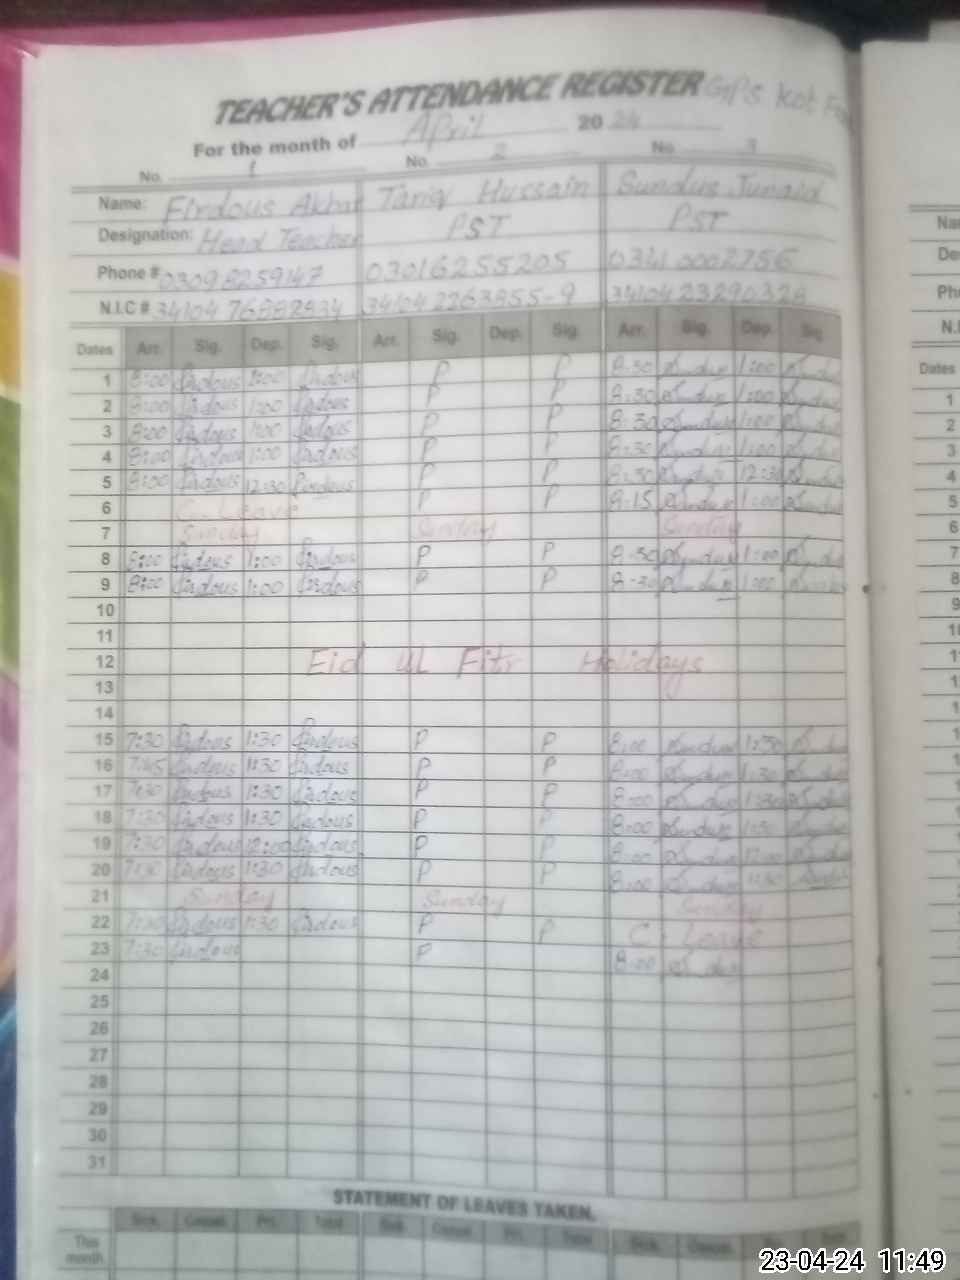 TEACHER'S ATTENDANCE REGISTER GGPS Kot
For the month of April 2024
No. 1 No. 2 No. 3
Name: Firdous Akhtar Tariq Hussain Sundus Junaid
Designation: Head Teacher PST PST
Phone # 03098259147 03016255205 03410002756
N.I.C # 34104 76882934 34104 2263855-9 34104 23290328
Dates Arr. Sig. Dep. Sig. Arr. Sig. Dep. Sig. Arr. Sig. Dep. Sig.
1 8:00 Firdous 1:00 Firdous P P 8:30 Sundus 1:00 Sundus
2 8:00 Firdous 1:00 Firdous P P 8:30 Sundus 1:00 Sundus
3 8:00 Firdous 1:00 Firdous P P 8:30 Sundus 1:00 Sundus
4 8:00 Firdous 1:00 Firdous P P 8:30 Sundus 1:00 Sundus
5 8:00 Firdous 12:30 Firdous P P 8:30 Sundus 12:30 Sundus
6 C. Leave P P 8:15 Sundus 1:00 Sundus
7 Sunday Sunday Sunday
8 8:00 Firdous 1:00 Firdous P P 8:30 Sundus 1:00 Sundus
9 8:00 Firdous 1:00 Firdous P P 8:30 Sundus 1:00 Sundus
10
11
12 Eid ul Fitr Holidays
13
14
15 7:30 Firdous 1:30 Firdous P P 8:00 Sundus 1:30 Sundus
16 7:45 Firdous 1:30 Firdous P P 8:00 Sundus 1:30 Sundus
17 7:30 Firdous 1:30 Firdous P P 8:00 Sundus 1:30 Sundus
18 7:30 Firdous 1:30 Firdous P P 8:00 Sundus 1:30 Sundus
19 7:30 Firdous 12:00 Firdous P P 8:00 Sundus 12:00 Sundus
20 7:30 Firdous 1:30 Firdous P P 8:00 Sundus 1:30 Sundus
21 Sunday Sunday Sunday
22 7:30 Firdous 1:30 Firdous P P C. Leave
23 7:30 Firdous P 8:00 Sundus
24
25
26
27
28
29
30
31
STATEMENT OF LEAVES TAKEN.
Sick. Casual. Pri. Total Sick. Casual. Pri. Total Sick. Casual.
This month
Dates
1
2
3
4
5
6
7
8
9
23-04-24 11:49